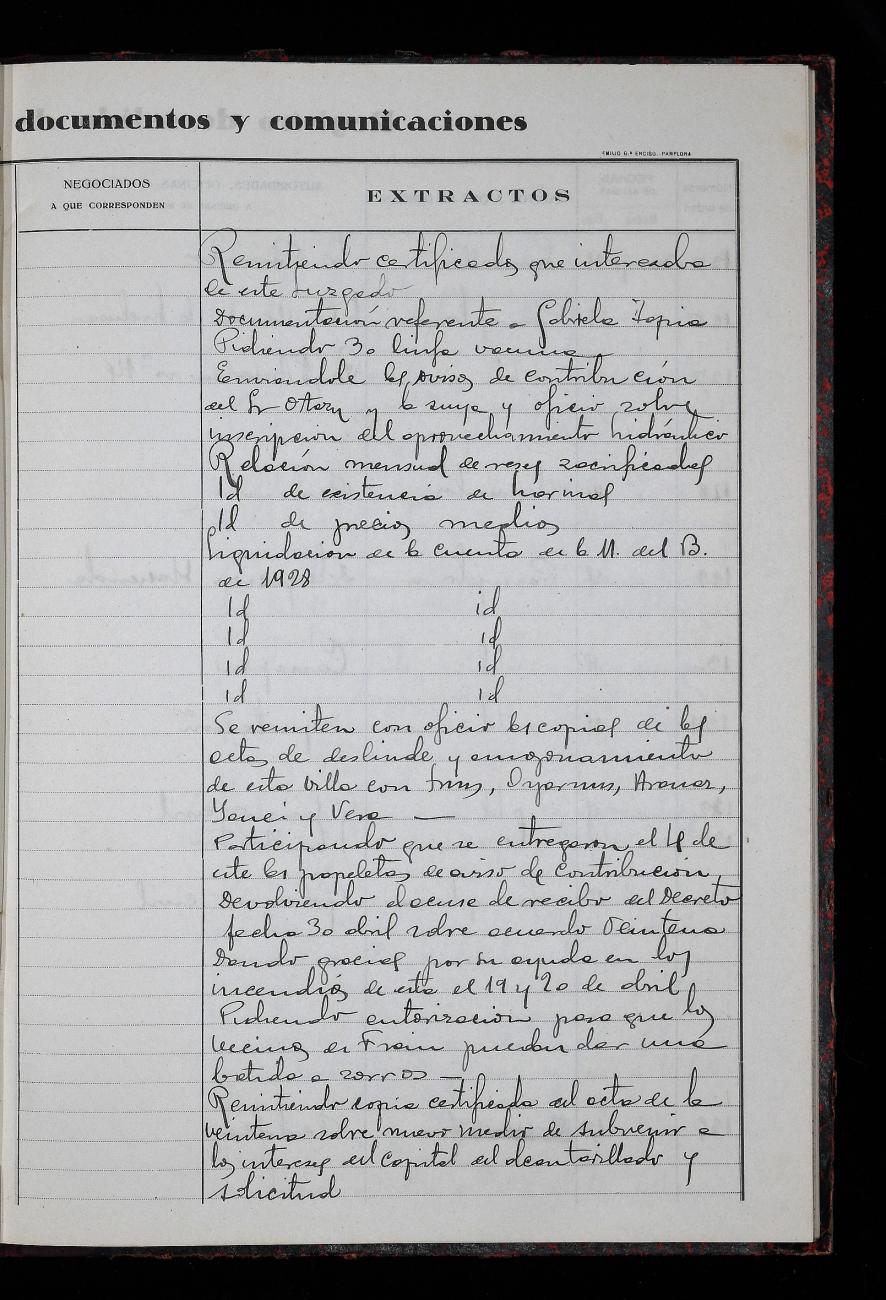 documentos y comunicaciones
EMILIO G.ª ENCISO.-PAMPLONA
NEGOCIADOS
A QUE CORRESPONDEN
EXTRACTOS
Remitiendo certificados que interesaba
de este Juzgado
Documentación referente a Gabriela Tapia
Pidiendo 30 linfa vacuna
Enviandole los avisos de contribución
del Sr Otazu y la suya y oficio sobre
inscripcion del aprovechamiento hidráulico
Relación mensual de reses sacrificadas
Id de existencia de harinas
Id de precios medios
Liquidacion de la cuenta de la M. del B.
de 1928
Id id
Id id
Id id
Id id
Se remiten con oficio las copias de las
actas de deslinde y amojonamiento
de esta villa con Oyarzun, Aranaz,
Yanci y Vera —
Participando que se entregaron el 4 de
este las papeletas de aviso de contribucion
Devolviendo el acuse de recibo del Decreto
fecha 30 abril sobre acuerdo Veintena
Dando gracias por su ayuda en los
incendios de esta el 19 y 20 de abril
Pidiendo autorizacion para que los
vecinos de puedan dar una
batida a zorros —
Remitiendo copia certificada del acta de la
veintena sobre nuevo medio de subvenir a
los intereses del capital del alcantarillado y
solicitud